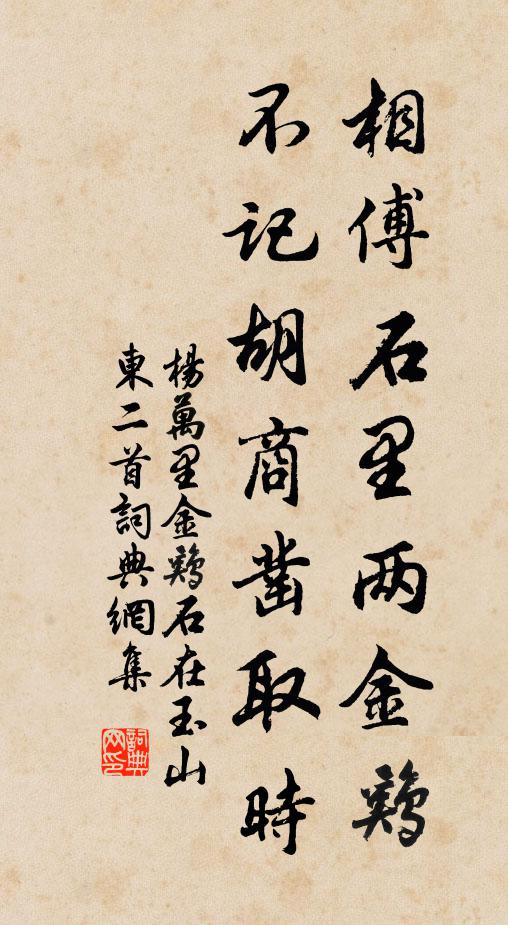 相傅石里两金鷄
不记胡商凿取時
楊萬里金鷄石在玉山
東二首詞典網集
詞典网印